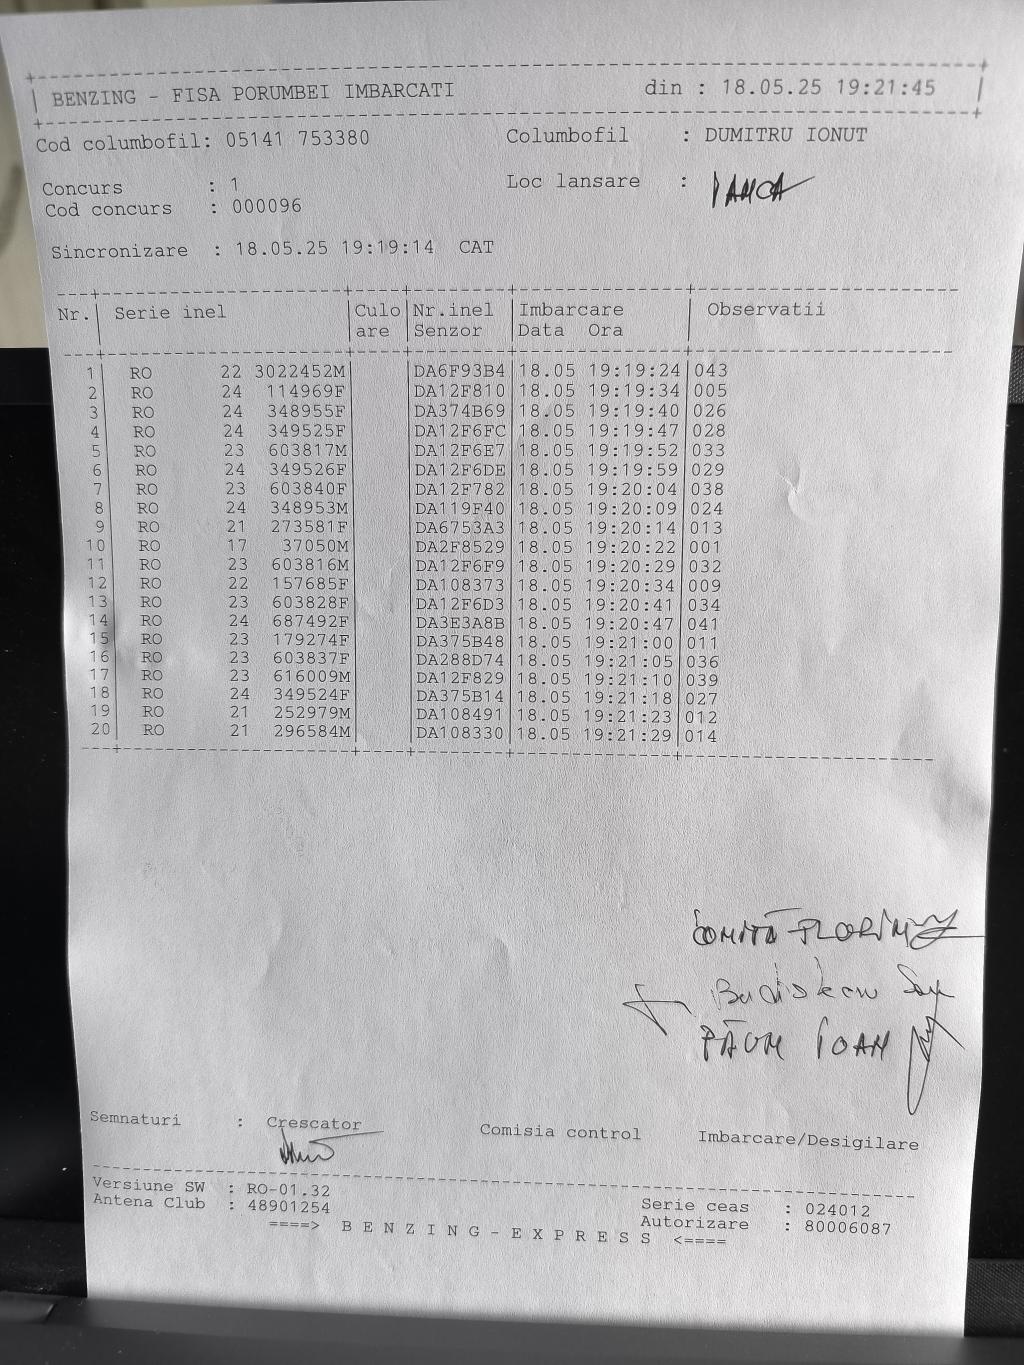 BENZING - FISA PORUMBEI IMBARCATI din : 18.05.25 19:21:45
Cod columbofil: 05141 753380 Columbofil : DUMITRU IONUT
Concurs : 1 Loc lansare :
Cod concurs : 000096
Sincronizare : 18.05.25 19:19:14 CAT
Nr. Serie inel Culo Nr.inel Imbarcare Observatii
are Senzor Data Ora
1 RO 22 3022452M DA6F93B4 18.05 19:19:24 043
2 RO 24 114969F DA12F810 18.05 19:19:34 005
3 RO 24 348955F DA374B69 18.05 19:19:40 026
4 RO 24 349525F DA12F6FC 18.05 19:19:47 028
5 RO 23 603817M DA12F6E7 18.05 19:19:52 033
6 RO 24 349526F DA12F6DE 18.05 19:19:59 029
7 RO 23 603840F DA12F782 18.05 19:20:04 038
8 RO 24 348953M DA119F40 18.05 19:20:09 024
9 RO 21 273581F DA6753A3 18.05 19:20:14 013
10 RO 17 37050M DA2F8529 18.05 19:20:22 001
11 RO 23 603816M DA12F6F9 18.05 19:20:29 032
12 RO 22 157685F DA108373 18.05 19:20:34 009
13 RO 23 603828F DA12F6D3 18.05 19:20:41 034
14 RO 24 687492F DA3E3A8B 18.05 19:20:47 041
15 RO 23 179274F DA375B48 18.05 19:21:00 011
16 RO 23 603837F DA288D74 18.05 19:21:05 036
17 RO 23 616009M DA12F829 18.05 19:21:10 039
18 RO 24 349524F DA375B14 18.05 19:21:18 027
19 RO 21 252979M DA108491 18.05 19:21:23 012
20 RO 21 296584M DA108330 18.05 19:21:29 014
FLORIN
PĂUN IOAN
Semnaturi : Crescator Comisia control Imbarcare/Desigilare
Versiune SW : RO-01.32 Serie ceas : 024012
Antena Club : 48901254 Autorizare : 80006087
====> B E N Z I N G - E X P R E S S <====